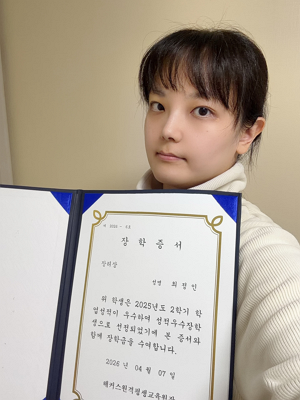 장학증서
성명 최정인
위 학생은 2025년도 2학기 학
업성적이 우수하여 성적우수장학
생으로 선정되었기에 본 증서와
함께 장학금을 수여합니다.
2026 년 04 월 07 일
해커스원격평생교육원장